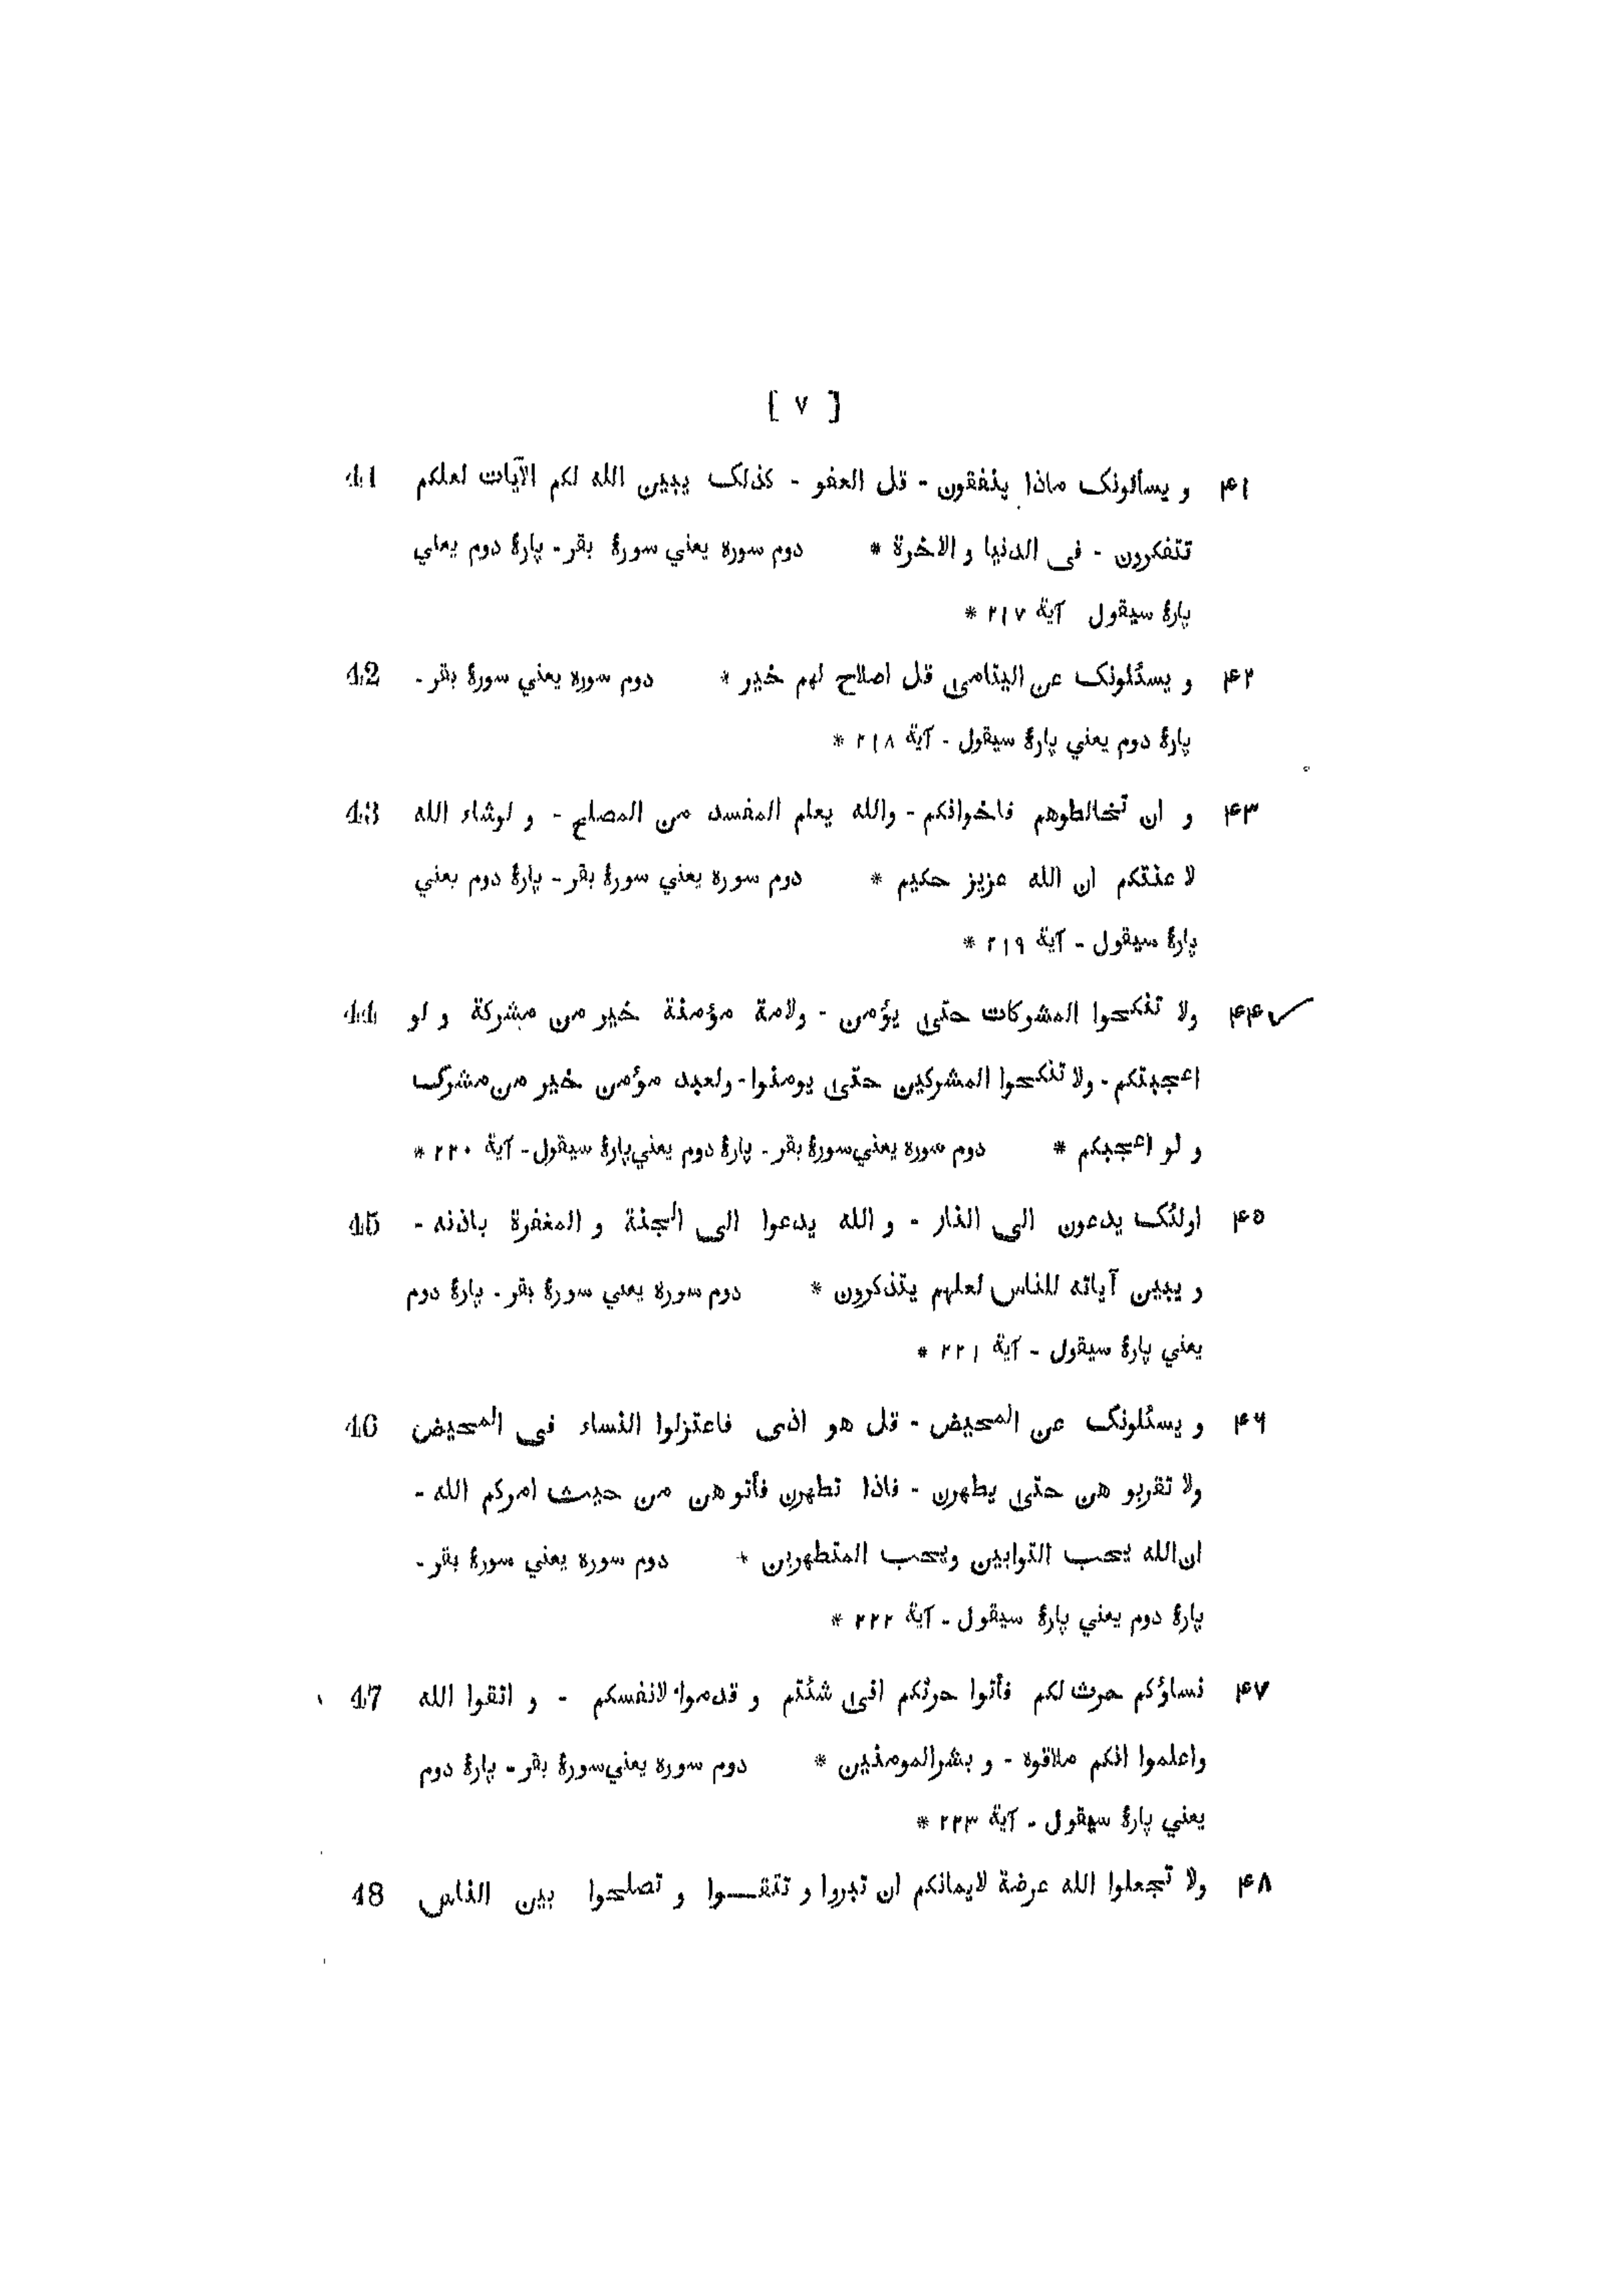 [ ٧ ]
۴۱ و يسألونک ماذا ينفقون - قل العفو - کذلک يبين الله لکم الآيات لعلکم 41
تتفکرون - فی الدنيا و الاخرة * دوم سوره يعني سورۀ بقر - پارۀ دوم يعني
پارۀ سيقول آية ۲۱۷ *
۴۲ و يسئلونک عن اليتامی قل اصلاح لهم خير * دوم سوره يعني سورۀ بقر - 42
پارۀ دوم يعني پارۀ سيقول - آية ۲۱۸ *
۴۳ و ان تخالطوهم فاخوانکم - والله يعلم المفسد من المصلح - و لوشاء الله 43
لا عنتکم ان الله عزيز حکيم * دوم سوره يعني سورۀ بقر - پارۀ دوم يعني
پارۀ سيقول - آية ۲۱۹ *
۴۴ ولا تنکحوا المشرکات حتی يؤمن - ولامة مؤمنة خير من مشرکة و لو 44
اعجبتکم - ولا تنکحوا المشرکين حتی يومنوا - ولعبد مؤمن خير من مشرک
و لو اعجبکم * دوم سوره يعني سورۀ بقر - پارۀ دوم يعني پارۀ سيقول - آية ۲۲۰ *
۴۵ اولئک يدعون الی النار - و الله يدعوا الی الجنة و المغفرة باذنه - 45
و يبين آياته للناس لعلهم يتذکرون * دوم سوره يعني سورۀ بقر - پارۀ دوم
يعني پارۀ سيقول - آية ۲۲۱ *
۴۶ و يسئلونک عن المحيض - قل هو اذی فاعتزلوا النساء فی المحيض 46
ولا تقربو هن حتی يطهرن - فاذا تطهرن فأتو هن من حيث امرکم الله -
ان الله يحب التوابين ويحب المتطهرين * دوم سوره يعني سورۀ بقر -
پارۀ دوم يعني پارۀ سيقول - آية ۲۲۲ *
۴۷ نساؤکم حرث لکم فأتوا حرثکم انی شئتم و قدموا لانفسکم - و اتقوا الله 47
واعلموا انکم ملاقوه - و بشر المومنين * دوم سوره يعني سورۀ بقر - پارۀ دوم
يعني پارۀ سيقول - آية ۲۲۳ *
۴۸ ولا تجعلوا الله عرضة لايمانکم ان تبروا و تتقـــوا و تصلحوا بين الناس 48